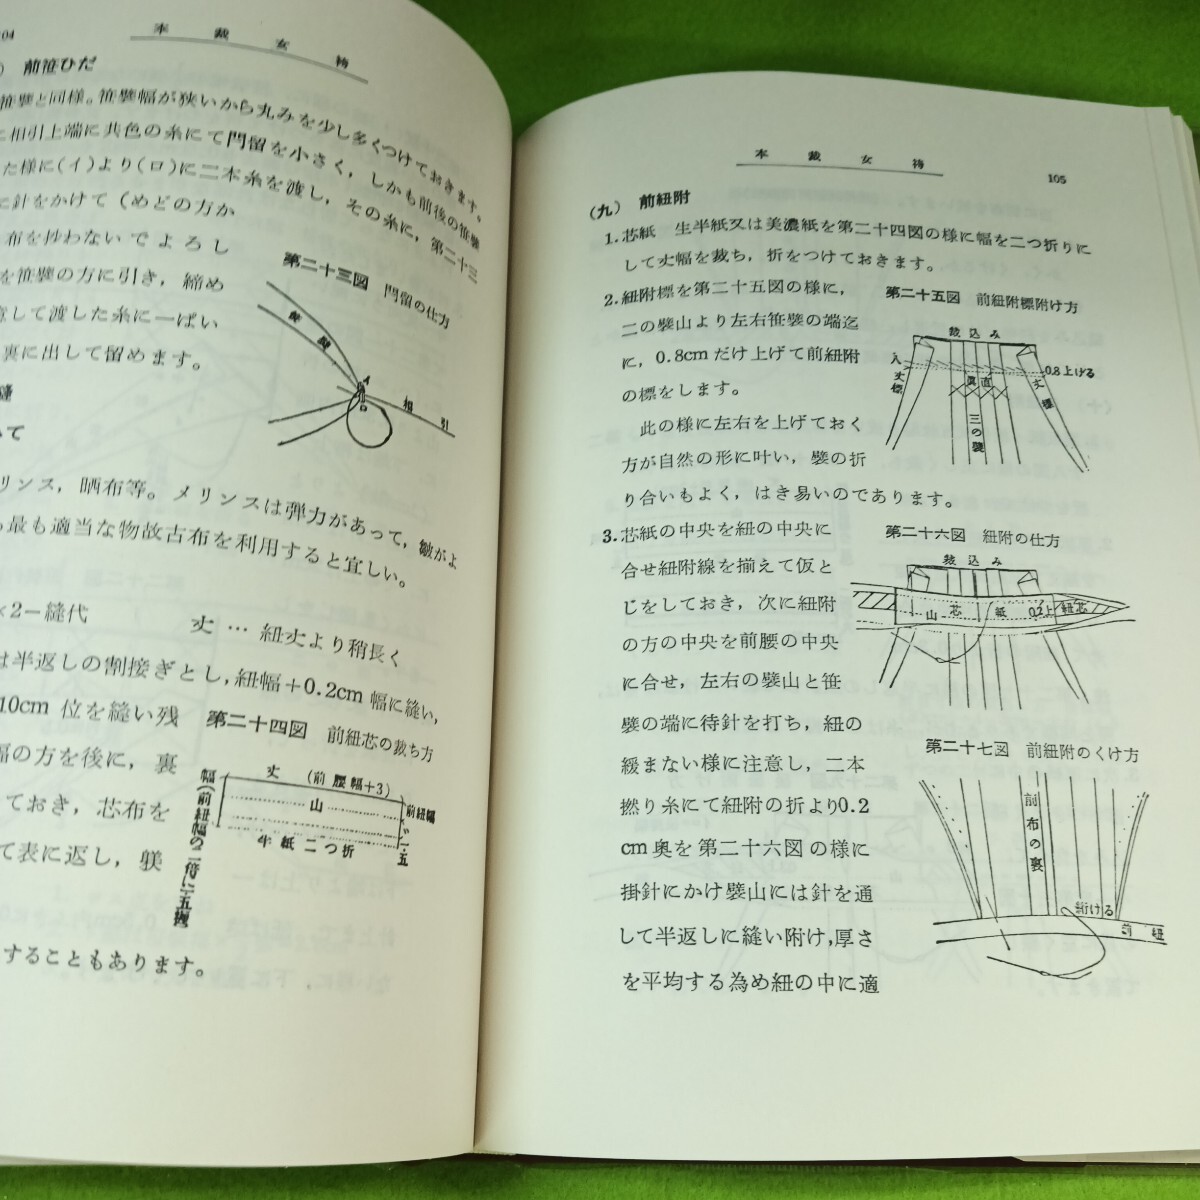 04
本裁女袴
） 前笹ひだ
笹襞と同様。笹襞幅が狭いから丸みを少し多くつけておきます。
に相引上端に共色の糸にて閂留を小さく，しかも前後の笹襞
た様に(イ)より(ロ)に二本糸を渡し，その糸に，第二十三
に針をかけて（めどの方か
布を抄わないでよろし
を笹襞の方に引き，締め
意して渡した糸に一ぱい
裏に出して留めます。
第二十三図 閂留の仕方
相引
縫
いて
リンス，晒布等。メリンスは弾力があって，皺がよ
も最も適当な物故古布を利用すると宜しい。
×2－縫代
丈 … 紐丈より稍長く
は半返しの割接ぎとし，紐幅＋0.2cm 幅に縫い，
10cm 位を縫い残
幅の方を後に，裏
ておき，芯布を
て表に返し，躾
第二十四図 前紐芯の裁ち方
丈 （前腰幅＋3）
山
半紙二つ折
幅（前紐幅の二倍に・五捌
前紐幅
することもあります。
本裁女袴
105
（九） 前紐附
1. 芯紙 生半紙又は美濃紙を第二十四図の様に幅を二つ折りに
して丈幅を裁ち，折をつけておきます。
2. 紐附標を第二十五図の様に，
二の襞山より左右笹襞の端迄
に，0.8cm だけ上げて前紐附
の標をします。
此の様に左右を上げておく
方が自然の形に叶い，襞の折
り合いもよく，はき易いのであります。
第二十五図 前紐附標附け方
裁込み
0.8上げる
入
丈標
真直
丈標
三の襞
3. 芯紙の中央を紐の中央に
合せ紐附線を揃えて仮と
じをしておき，次に紐附
の方の中央を前腰の中央
に合せ，左右の襞山と笹
襞の端に待針を打ち，紐の
緩まない様に注意し，二本
撚り糸にて紐附の折より0.2
cm奥を第二十六図の様に
掛針にかけ襞山には針を通
して半返しに縫い附け，厚さ
を平均する為め紐の中に適
第二十六図 紐附の仕方
裁込み
山 芯 紙 0.2上 紐芯
第二十七図 前紐附のくけ方
前布の裏
絎ける
前紐